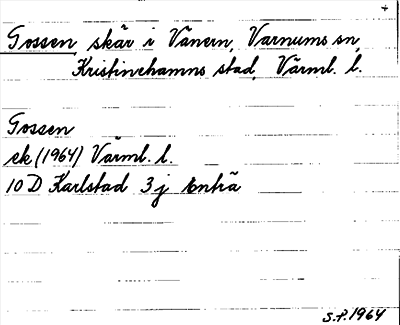 Gossen skär i Vänern, Varnums sn,
Kristinehamns stad, Värml. l.
Gossen
ek (1964) Värml. l.
10 D Karlstad 3 j Enträ
S.P. 1964